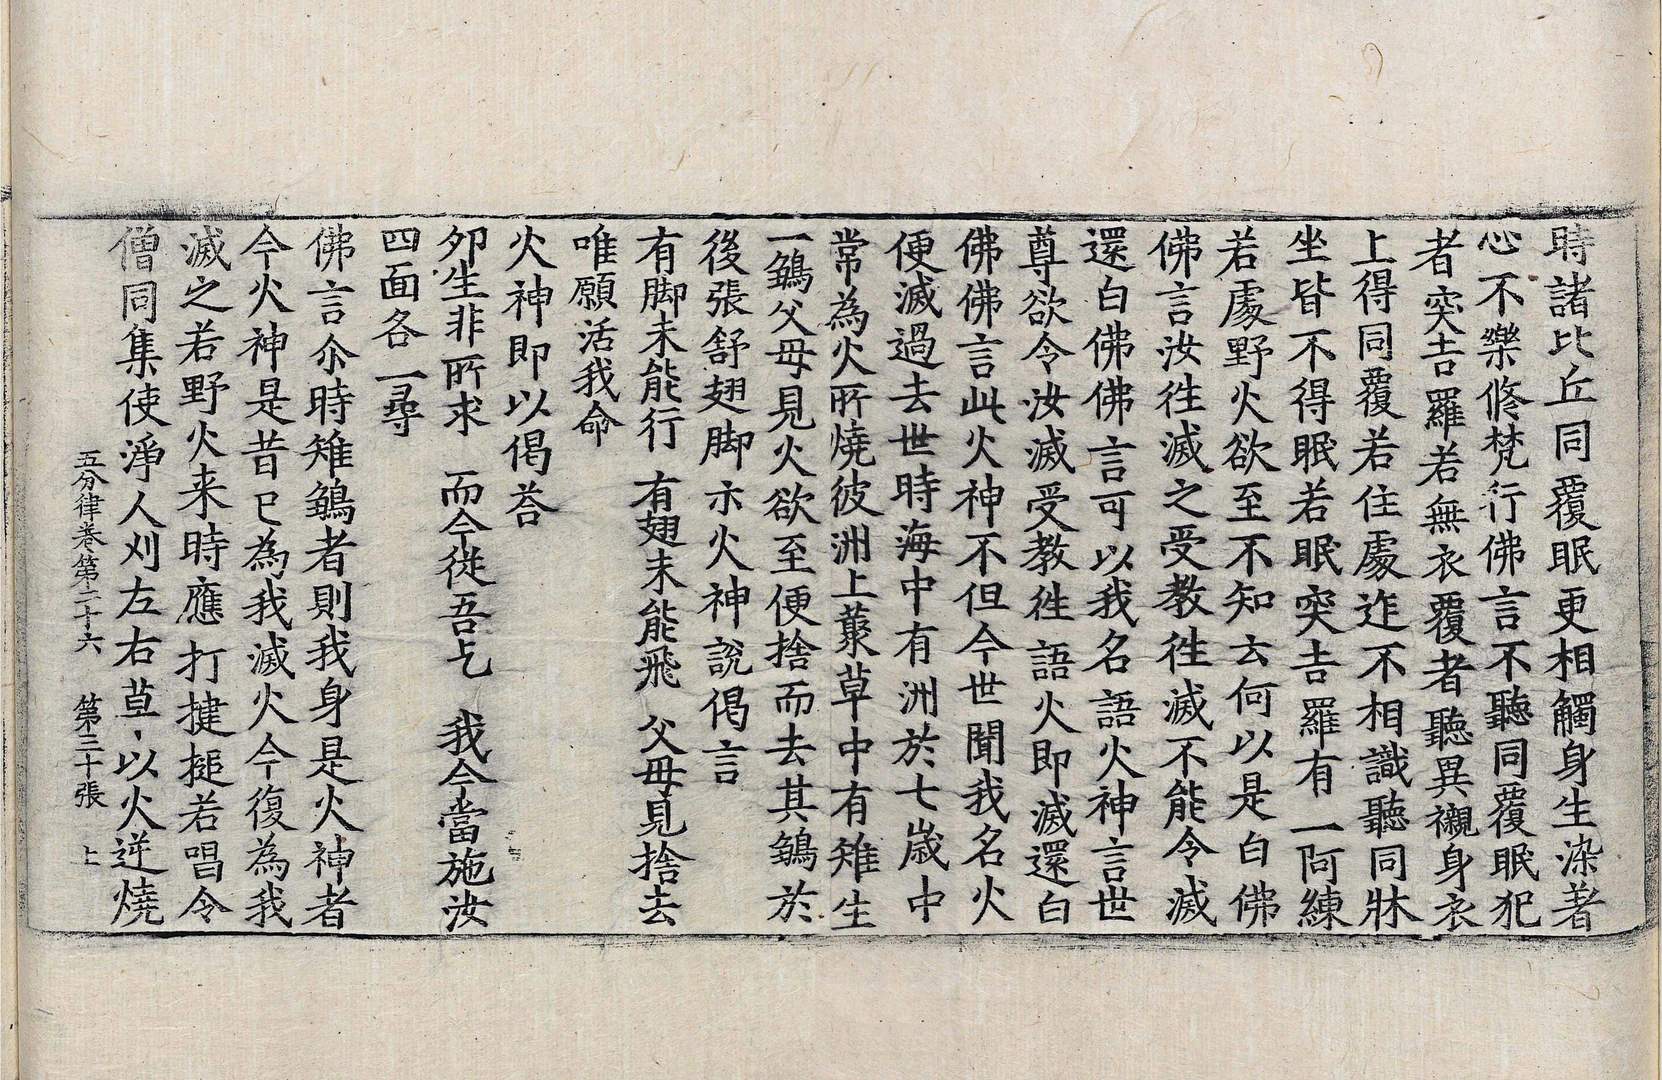 時諸比丘同覆眠更相觸身生染著
心不樂脩梵行佛言不聽同覆眠犯
者突吉羅若無衣覆者聽異襯身衣
上得同覆若住處迮不相識聽同牀
坐皆不得眠若眠突吉羅有一阿練
若處野火欲至不知云何以是白佛
佛言汝往滅之受教往滅不能令滅
還白佛佛言可以我名語火神言世
尊欲令汝滅受教往語火即滅還白
佛佛言此火神不但今世聞我名火
便滅過去世時海中有洲於七歲中
常為火所燒彼洲上藂草中有雉生
一鶵父母見火欲至便捨而去其鶵於
後張舒翅脚示火神說偈言
有脚未能行　有翅未能飛　父母見捨去
唯願活我命
火神即以偈荅
夘生非所求　而今從吾乞　我今當施汝
四面各一尋
佛言尒時雉鶵者則我身是火神者
今火神是昔已為我滅火今復為我
滅之若野火来時應打揵搥若唱令
僧同集使淨人刈左右草以火逆燒
五分律卷第二十六　第三十張　上